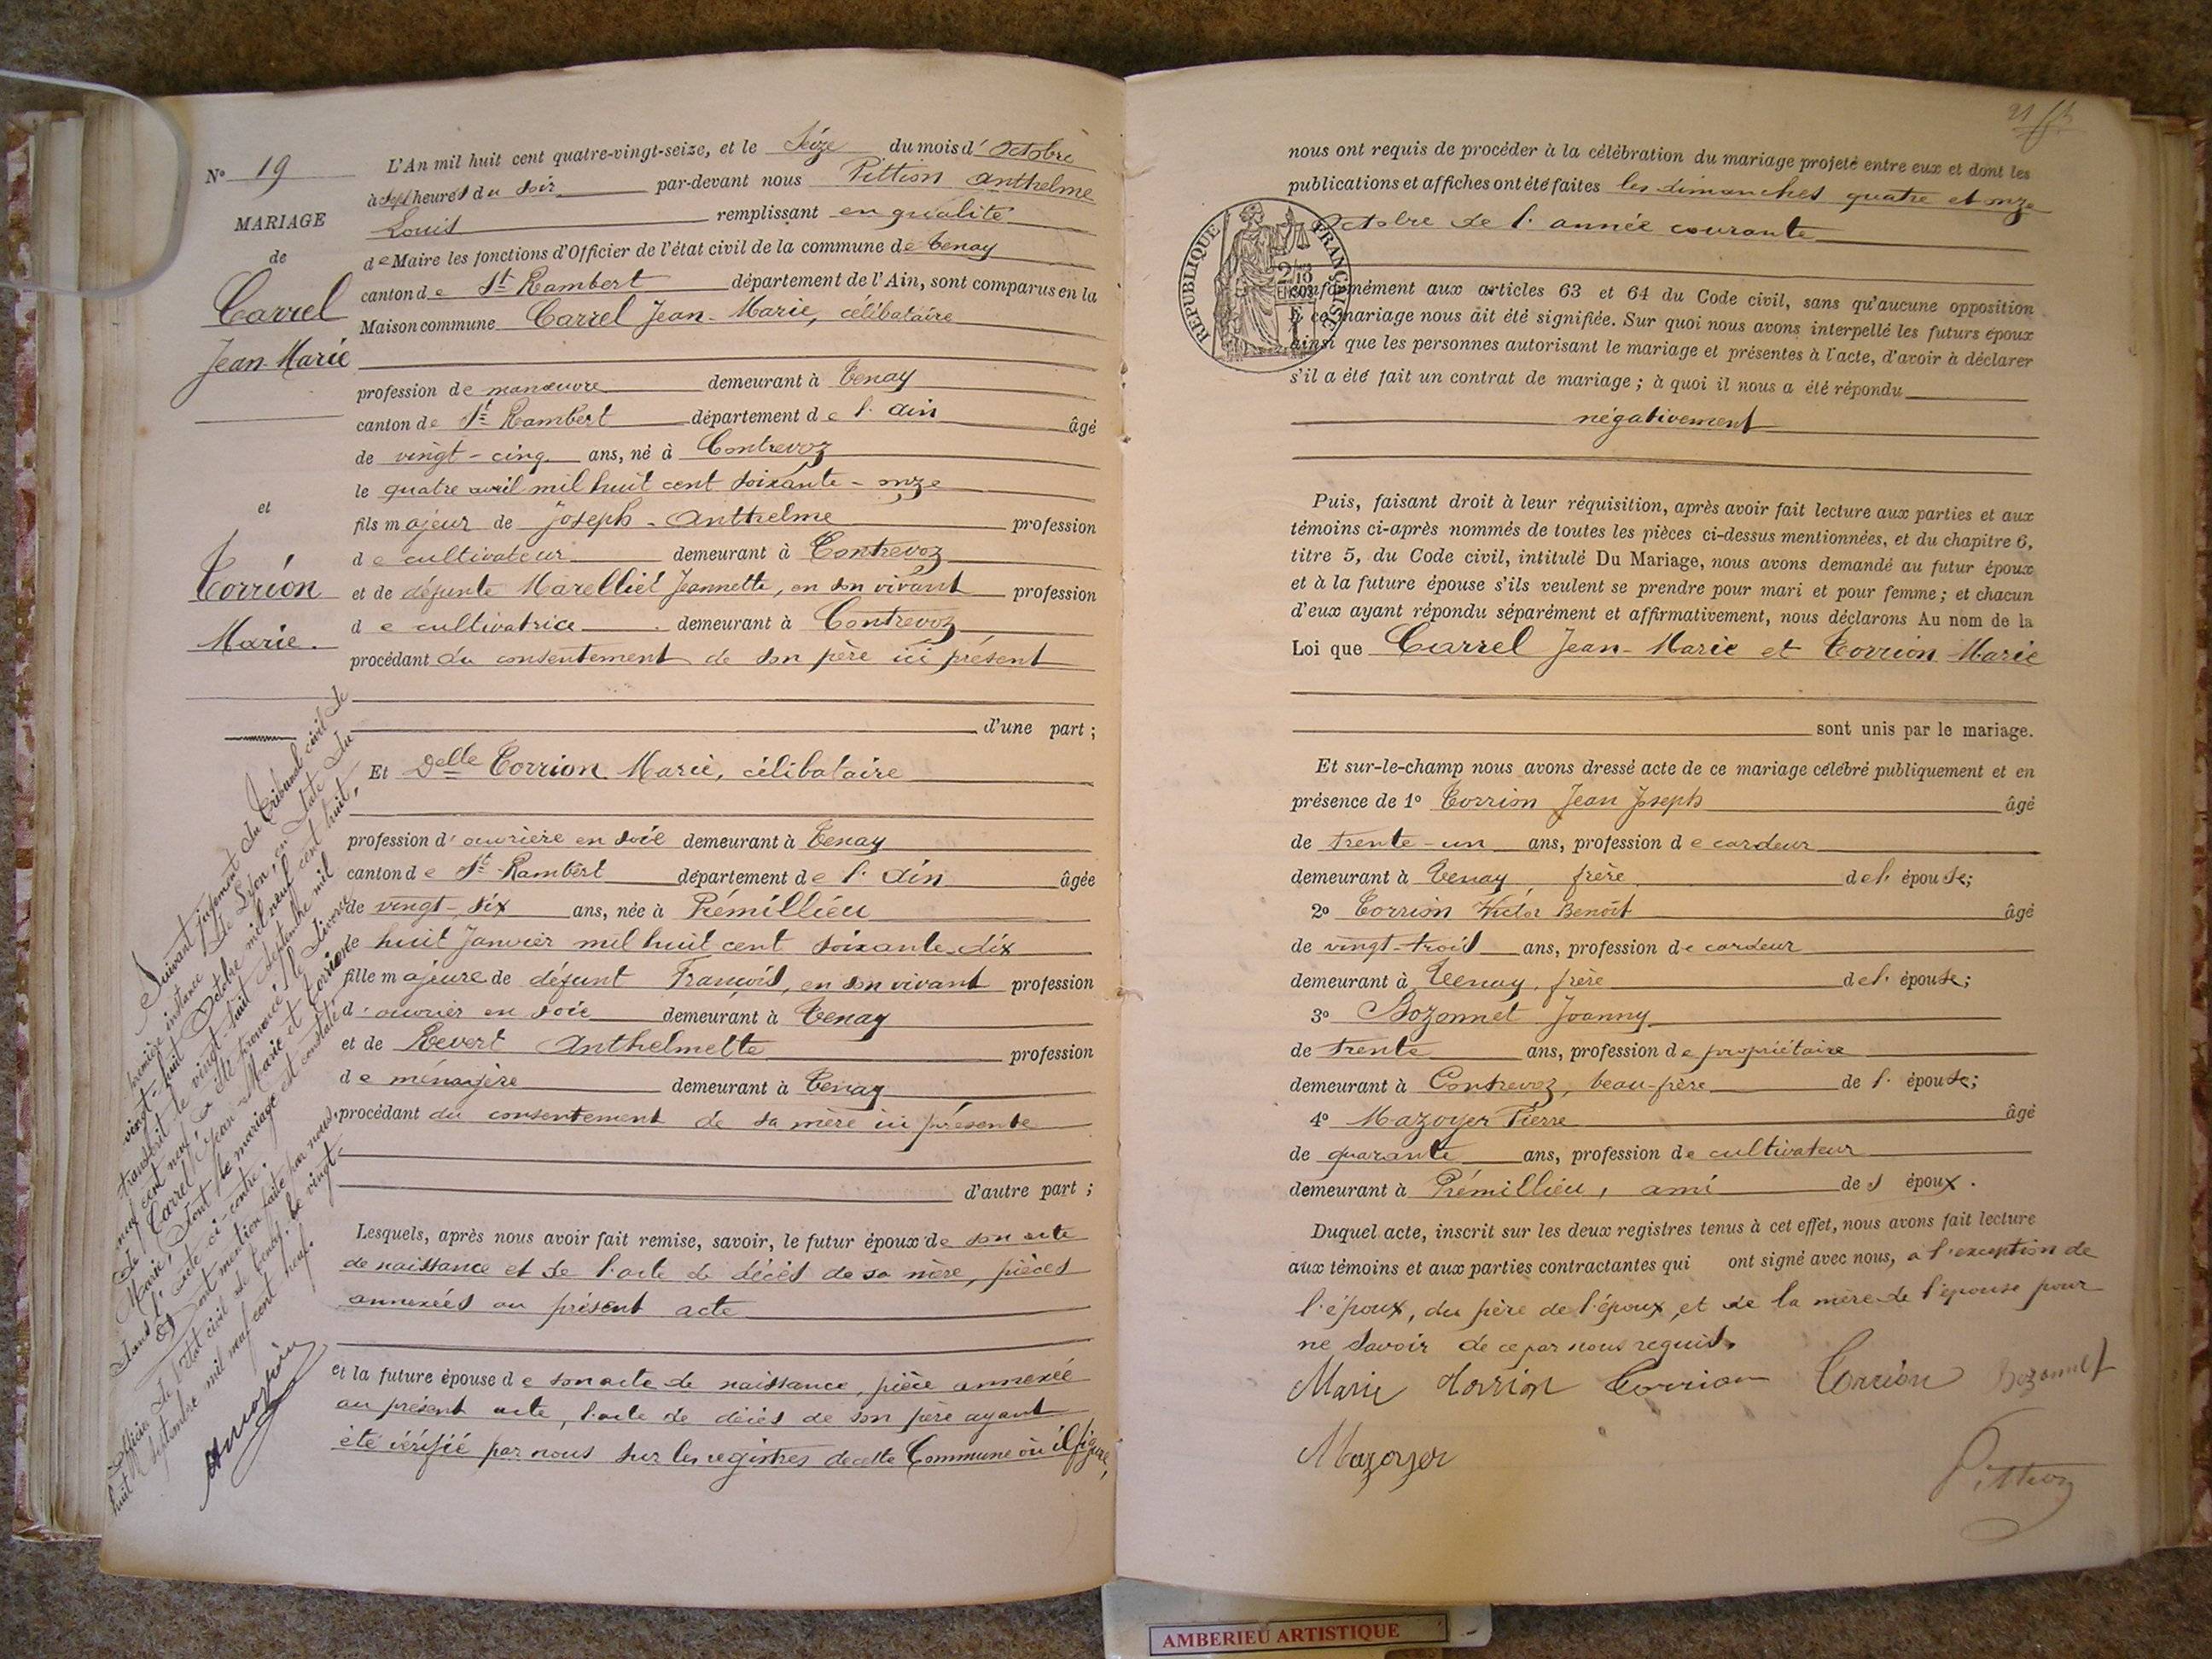 N° 19
MARIAGE
de
Carrel
Jean-Marie
et
Torrion
Marie.
L'An mil huit cent quatre-vingt-seize, et le Seize du mois d'Octobre
à sept heures du soir par-devant nous Pittion Anthelme
Louis remplissant en qualité
de Maire les fonctions d'Officier de l'état civil de la commune de Tenay
canton de St Rambert département de l'Ain, sont comparus en la
Maison commune Carrel Jean-Marie, célibataire
profession de manœuvre demeurant à Tenay
canton de St Rambert département de l'Ain âgé
de vingt-cinq ans, né à Contrevoz
le quatre avril mil huit cent soixante-onze
fils majeur de Joseph-Anthelme profession
de cultivateur demeurant à Contrevoz
et de défunte Marelliet Jeannette, en son vivant profession
de cultivatrice demeurant à Contrevoz
procédant du consentement de son père ici présent
d'une part;
Et Delle Torrion Marie, célibataire
profession d'ouvrière en soie demeurant à Tenay
canton de St Rambert département de l'Ain âgée
de vingt-six ans, née à Prémillieu
le huit Janvier mil huit cent soixante-dix
fille majeure de défunt François, en son vivant profession
d'ouvrier en soie demeurant à Tenay
et de Revert Anthelmette profession
de ménagère demeurant à Tenay
procédant du consentement de sa mère ici présente
d'autre part;
Lesquels, après nous avoir fait remise, savoir, le futur époux de son acte
de naissance et de l'acte de décès de sa mère, pièces
annexées au présent acte
et la future épouse de son acte de naissance, pièce annexée
au présent acte, l'acte de décès de son père ayant
été vérifié par nous sur les registres de cette Commune où il figure,
Suivant jugement du Tribunal civil de
première instance de Lyon, en date du
vingt-huit Octobre mil neuf cent huit,
transcrit le vingt-huit septembre mil
neuf cent neuf, a été prononcé le divorce
de Carrel Jean-Marie et Torrion
Marie, dont le mariage est constaté
dans l'acte ci-contre.
Dont mention faite par nous,
Officier de l'état civil de Tenay, le vingt-
huit septembre mil neuf cent neuf.
nous ont requis de procéder à la célébration du mariage projeté entre eux et dont les
publications et affiches ont été faites les dimanches quatre et onze
Octobre de l'année courante
RÉPUBLIQUE FRANÇAISE
2/10
EN SUS
conformément aux articles 63 et 64 du Code civil, sans qu'aucune opposition
à ce mariage nous ait été signifiée. Sur quoi nous avons interpellé les futurs époux
ainsi que les personnes autorisant le mariage et présentes à l'acte, d'avoir à déclarer
s'il a été fait un contrat de mariage; à quoi il nous a été répondu
négativement
Puis, faisant droit à leur réquisition, après avoir fait lecture aux parties et aux
témoins ci-après nommés de toutes les pièces ci-dessus mentionnées, et du chapitre 6,
titre 5, du Code civil, intitulé Du Mariage, nous avons demandé au futur époux
et à la future épouse s'ils veulent se prendre pour mari et pour femme; et chacun
d'eux ayant répondu séparément et affirmativement, nous déclarons Au nom de la
Loi que Carrel Jean-Marie et Torrion Marie
sont unis par le mariage.
Et sur-le-champ nous avons dressé acte de ce mariage célébré publiquement et en
présence de 1° Torrion Jean Joseph âgé
de trente-un ans, profession de cardeur
demeurant à Tenay, frère de l'épouse;
2° Torrion Victor Benoît âgé
de vingt-trois ans, profession de cardeur
demeurant à Tenay, frère de l'épouse;
3° Bozonnet Joanny
de trente ans, profession de propriétaire
demeurant à Contrevoz, beau-frère de l'épouse;
4° Mazoyer Pierre âgé
de quarante ans, profession de cultivateur
demeurant à Prémillieu, ami des époux.
Duquel acte, inscrit sur les deux registres tenus à cet effet, nous avons fait lecture
aux témoins et aux parties contractantes qui ont signé avec nous, à l'exception de
l'époux, du père de l'époux, et de la mère de l'épouse pour
ne savoir de ce par nous requis.
Marie Torrion Torrion Torrion Bozonnet
Mazoyer
Pittion
AMBERIEU ARTISTIQUE